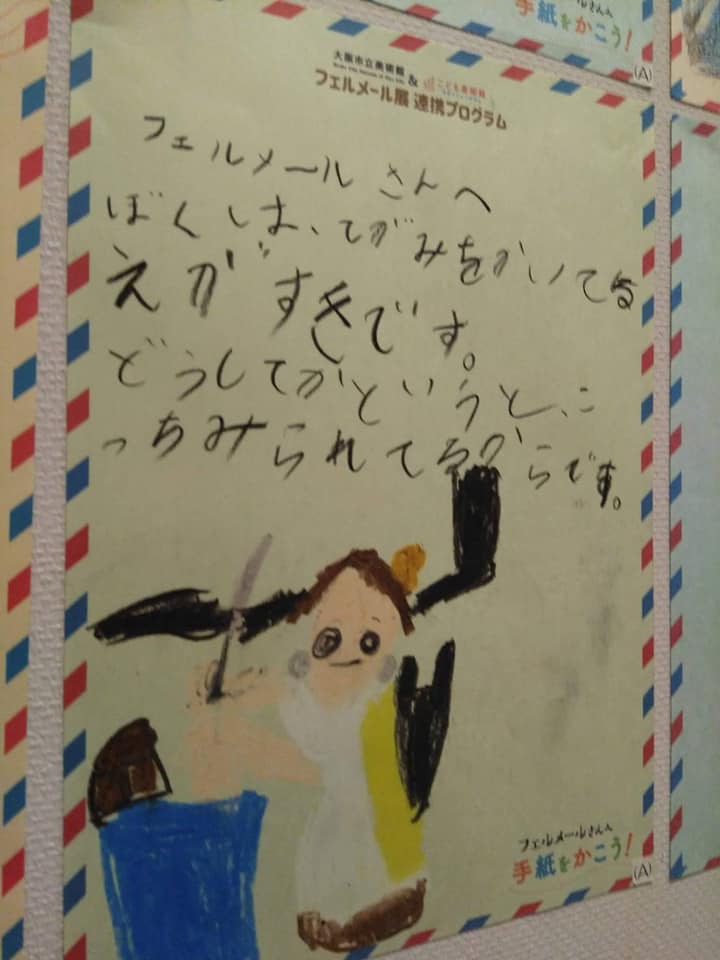 手紙をかこう！
(A)
大阪市立美術館 & こども美術館
フェルメール展 連携プログラム
フェルメールさんへ
ぼくしは、てがみをかいてる
えがすきです。
どうしてかというと、こ
っちみられてるからです。
フェルメールさんへ
手紙をかこう！
(A)